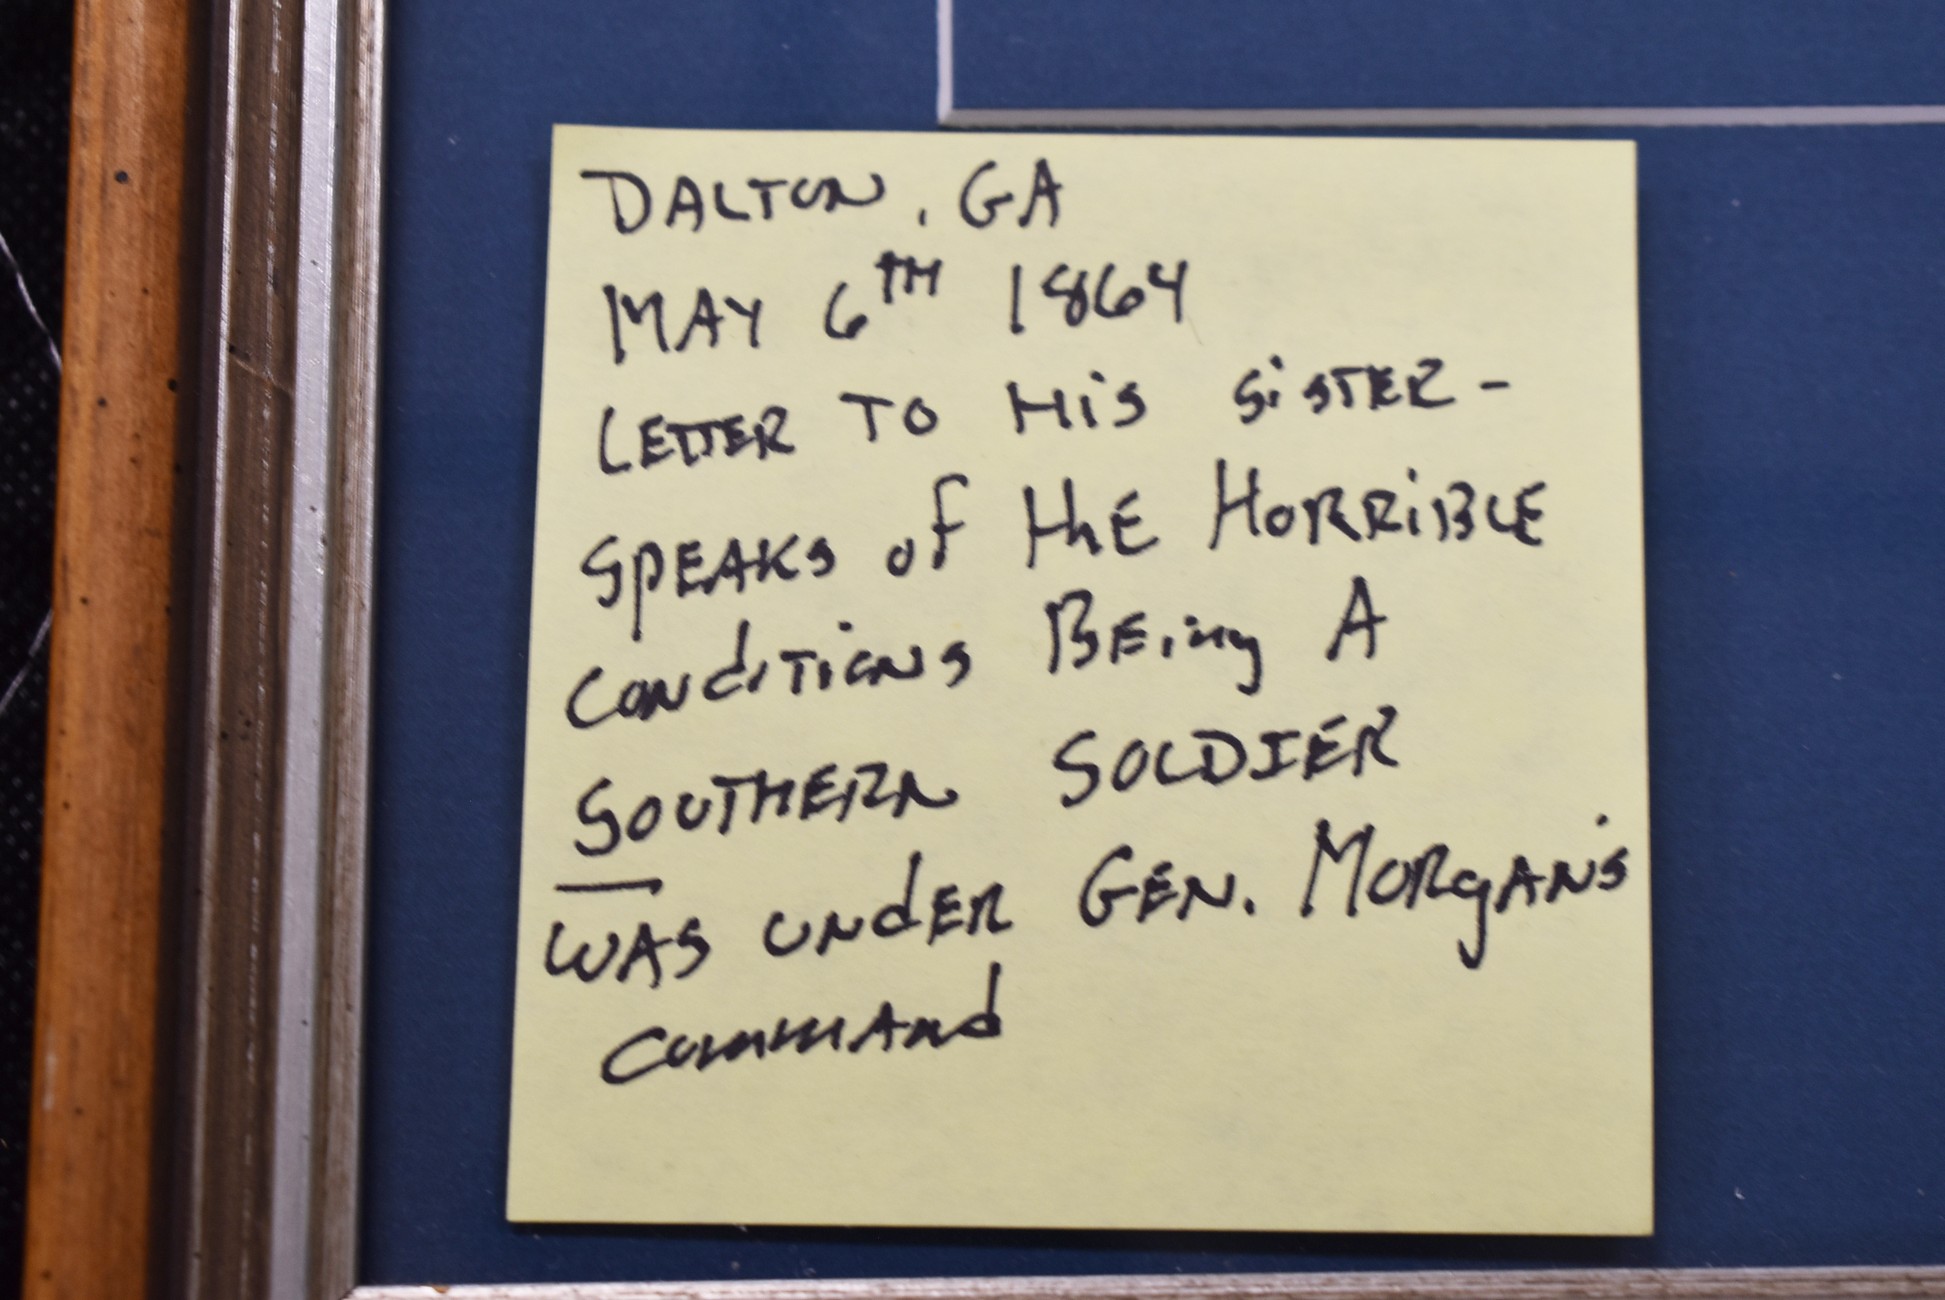 DALTON, GA
MAY 6TH 1864
LETTER TO HiS SiSTER -
SPEAKS of tHE HORRiBLE
CONdiTiONS BEing A
SOUTHERN SOLDIER
—
WAS UNdER GEN. MORgAN'S
COMMANd